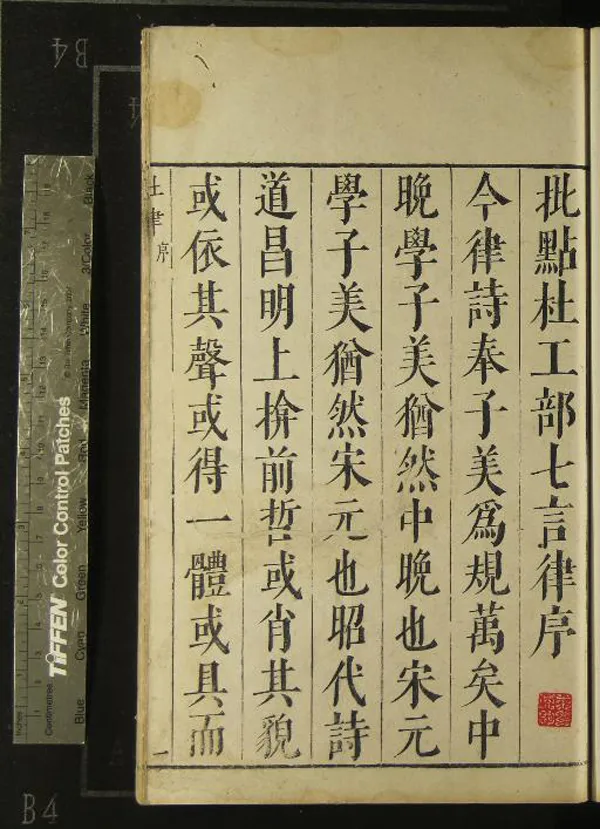 批點杜工部七言律序
今律詩奉子美爲規萬矣中
晚學子美猶然中晚也宋元
學子美猶然宋元也昭代詩
道昌明上揜前哲或肖其貌
或依其聲或得一體或具而
序
一
TIFFEN Color Control Patches
© The Tiffen Company, 2007
Inches
Centimetres
Blue Cyan Green Yellow Red Magenta White 3/Color Black
B4
B4